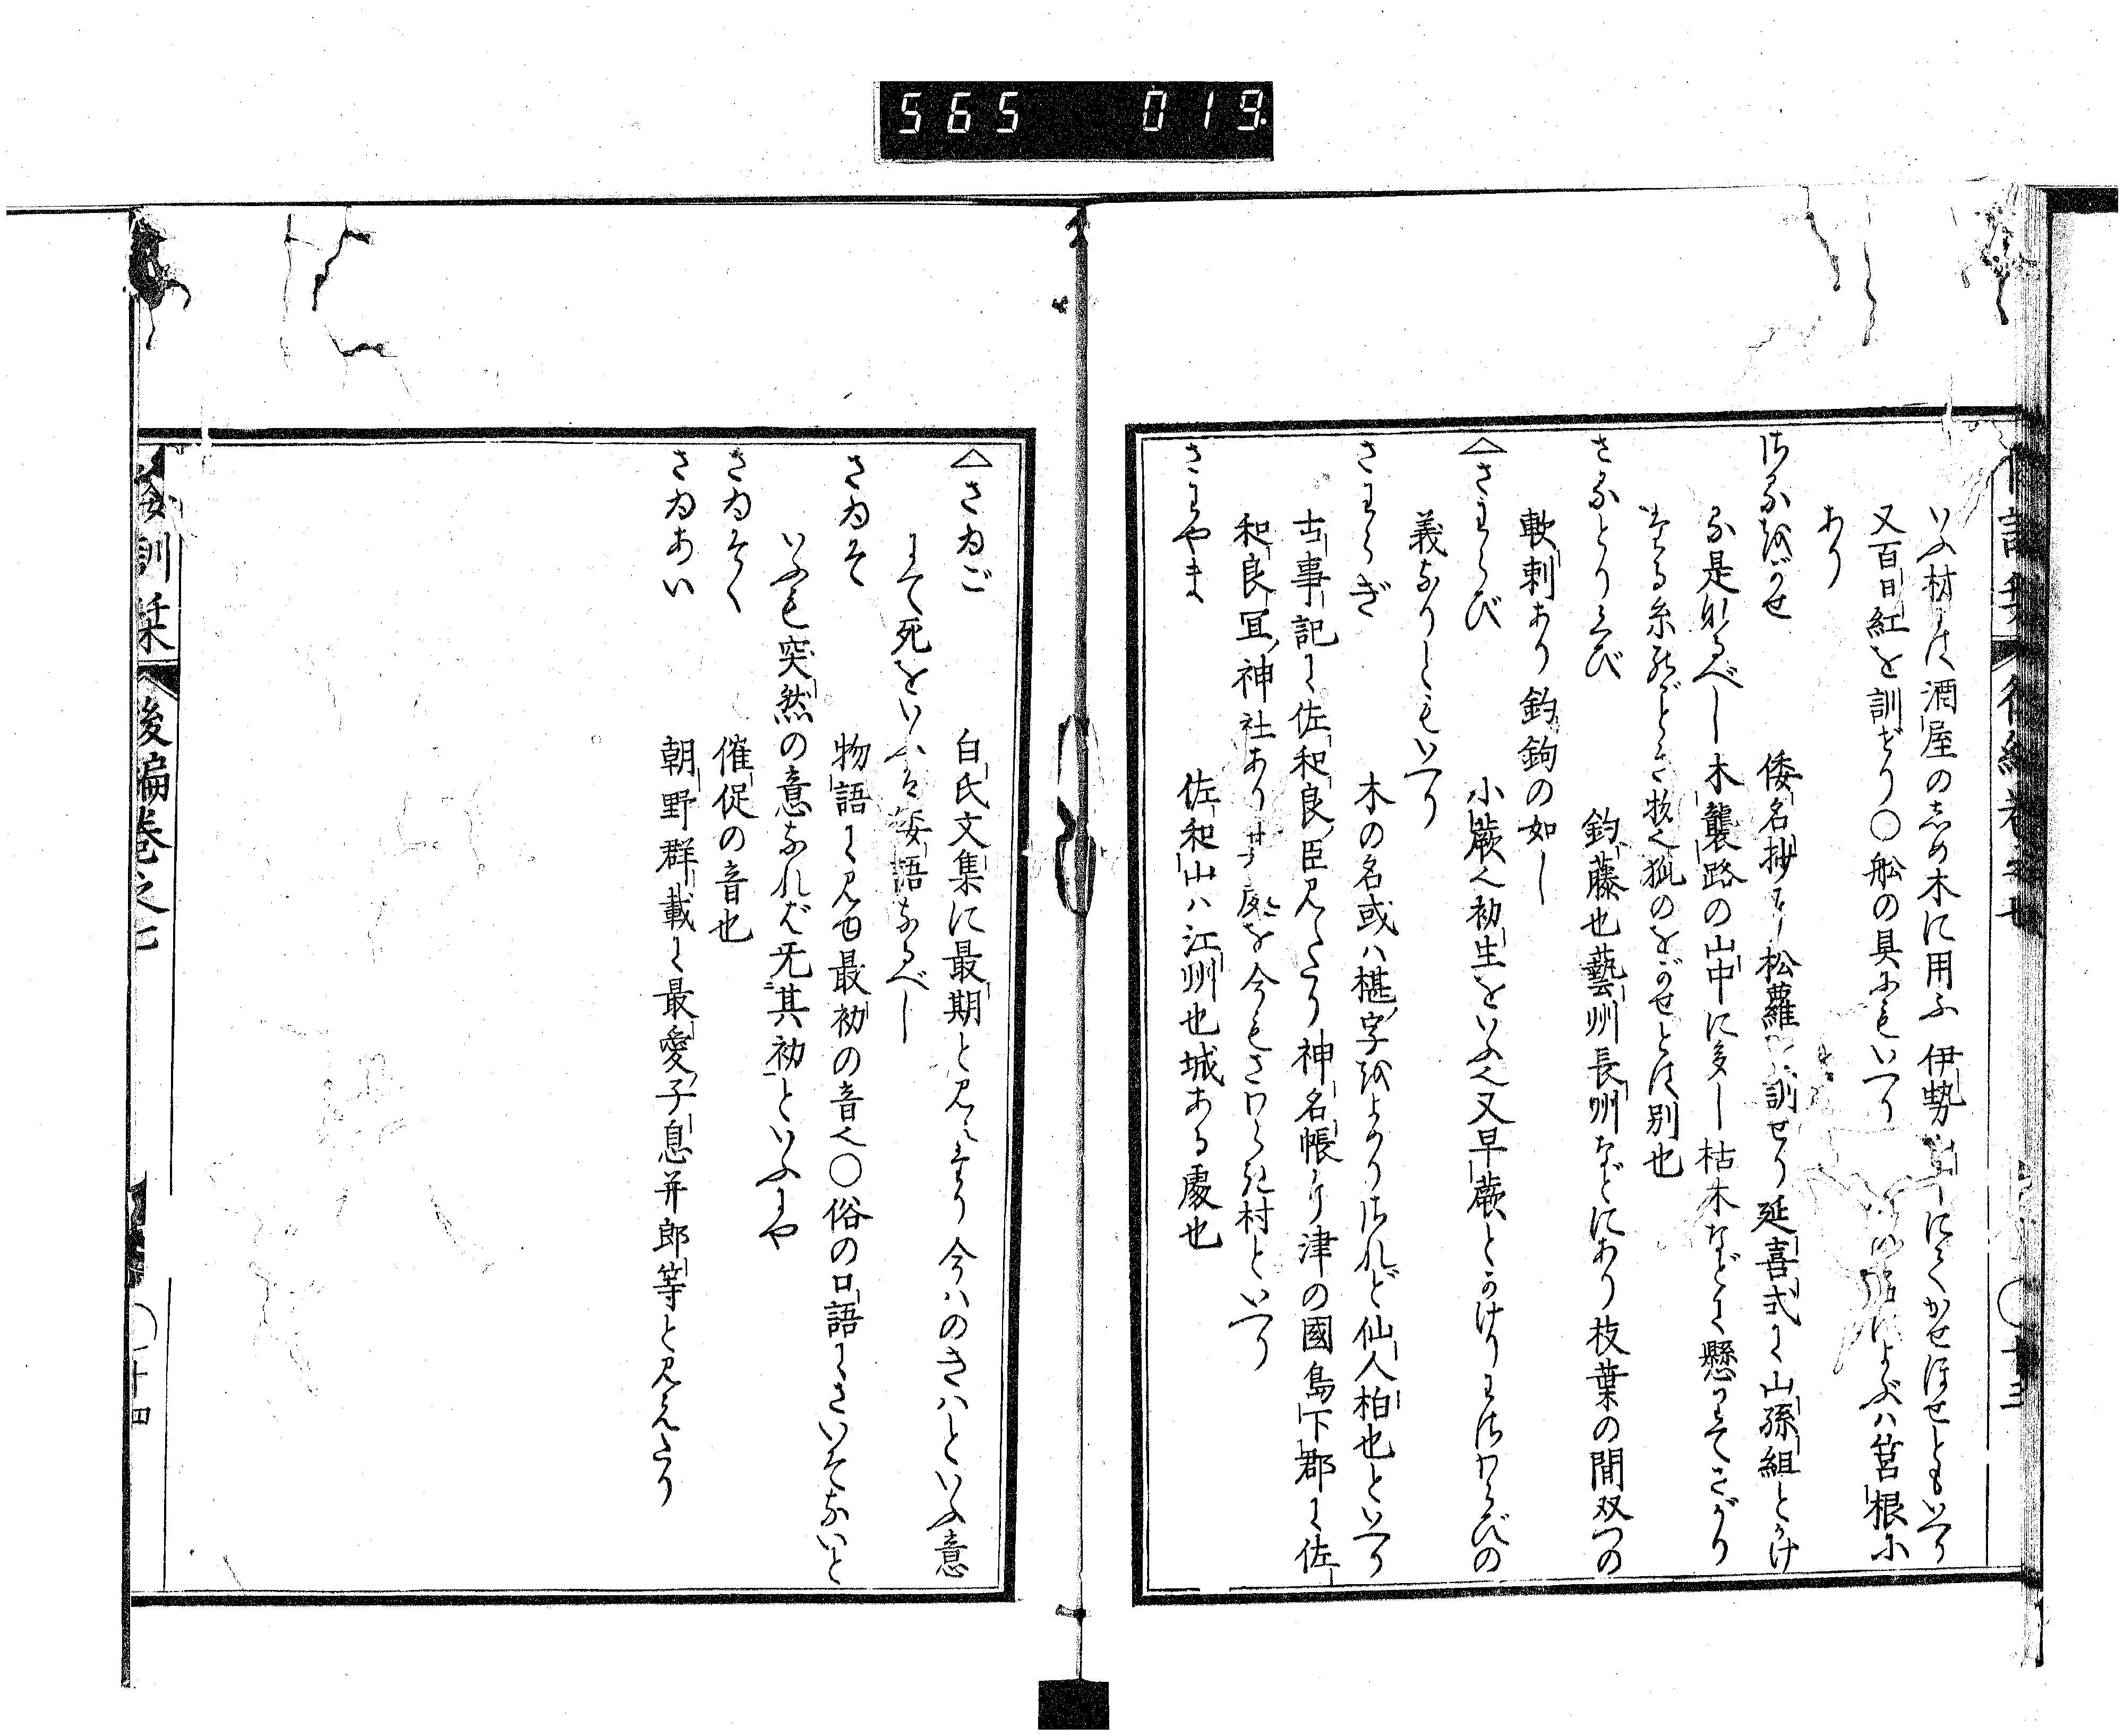 565 019
いふ材には酒屋のしめ木に用ふ伊勢にてかせほせともいへり
又百日紅を訓ぜり〇船の具にもいへり よぶハ筥根に
あり
さるをがせ 倭名抄に松蘿を訓せり延喜式に山孫組とかけ
る是なるべし木襲路の山中に多し枯木などに懸りてさがり
たる糸のごとき物也狐のをがせとは別也
さるとりえび 釣藤也藝州長州などにあり枝葉の間双つの
軟刺あり釣鉤の如し
△さわらび 小蕨也初生をいふ也又早蕨とかけりわさわらびの
義なりともいへり
さわらぎ 木の名或ハ椹字をよめりされど仙人柏也といへり
古事記に佐和良臣見えたり神名帳に津の國島下郡に佐
和良冝神社あり其處を今もさわらぎ村といへり
さわやま 佐和山ハ江州也城ある處也
△さゐご 白氏文集に最期と見えたり今ハのきハといふ意
にて死をいふは婆語なるべし
さゐそ 物語に見ゆ最初の音也〇俗の口語にさいそないと
いふも突然の意なれば无其初といふにや
さゐそく 催促の音也
さゐあい 朝野群載に最愛子息并郎等と見えたり
訓栞 後編巻之七 〇十四